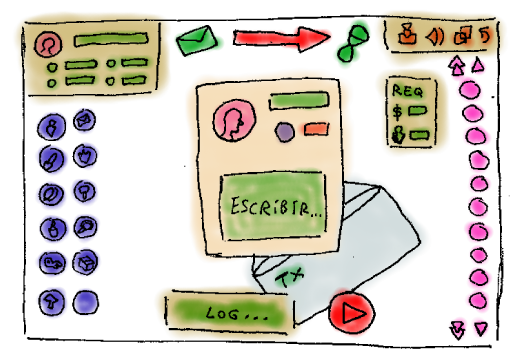 5
REQ
$
ESCRIBIR...
TX
LOG...